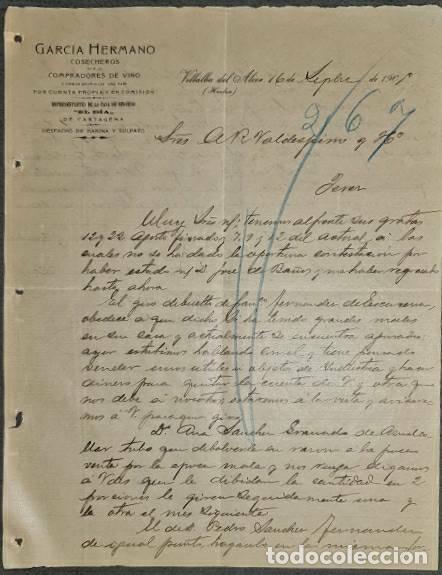 GARCÍA HERMANO
COSECHEROS
Y
COMPRADORES DE VINO
POR CUENTA PROPIA Y EN COMISIÓN
REPRESENTANTES DE LA CASA DE SEGUROS
"EL DÍA"
DE CARTAGENA
DESPACHO DE HARINA Y SULFATO
Villalba del Alcor 16 de Septbre de 190
(Huelva)
267
Sres A R Valdespino y Hº
Jerez
Muy Sres ntº: tenemos al frente sus gratas
12 y 22 Agosto pasado y 7, 9 y 12 del actual, a las
cuales no se ha dado la oportuna contestacion por
haber estado ntº José de Baños y no haber regresado
hasta ahora.
El giro devuelto de Fernandez de Escacena,
obedece a que dicho Sr ha tenido grandes males
en su casa y actualmente se encuentra apurado
ayer estubimos hablando con el y tiene pensado
vender unos utiles u objetos de Industria y hacer
dinero para quitar la cuenta de V. y otra que
nos debe a nosotros, estaremos a la vista y avisaremos
a V. para que gire
Dª Ana Sanchez Granado de
tubo que debolverla en razon a la poca
venta por la epoca mala y nos ruega digamos
a Vdes que le debidan la cantidad en 2
porciones le giren seguidamente una y
la otra el mes siguiente.
El de D. Pedro Sanchez Fernandez
de igual punto, haganlo en la misma
todocoleccion.net